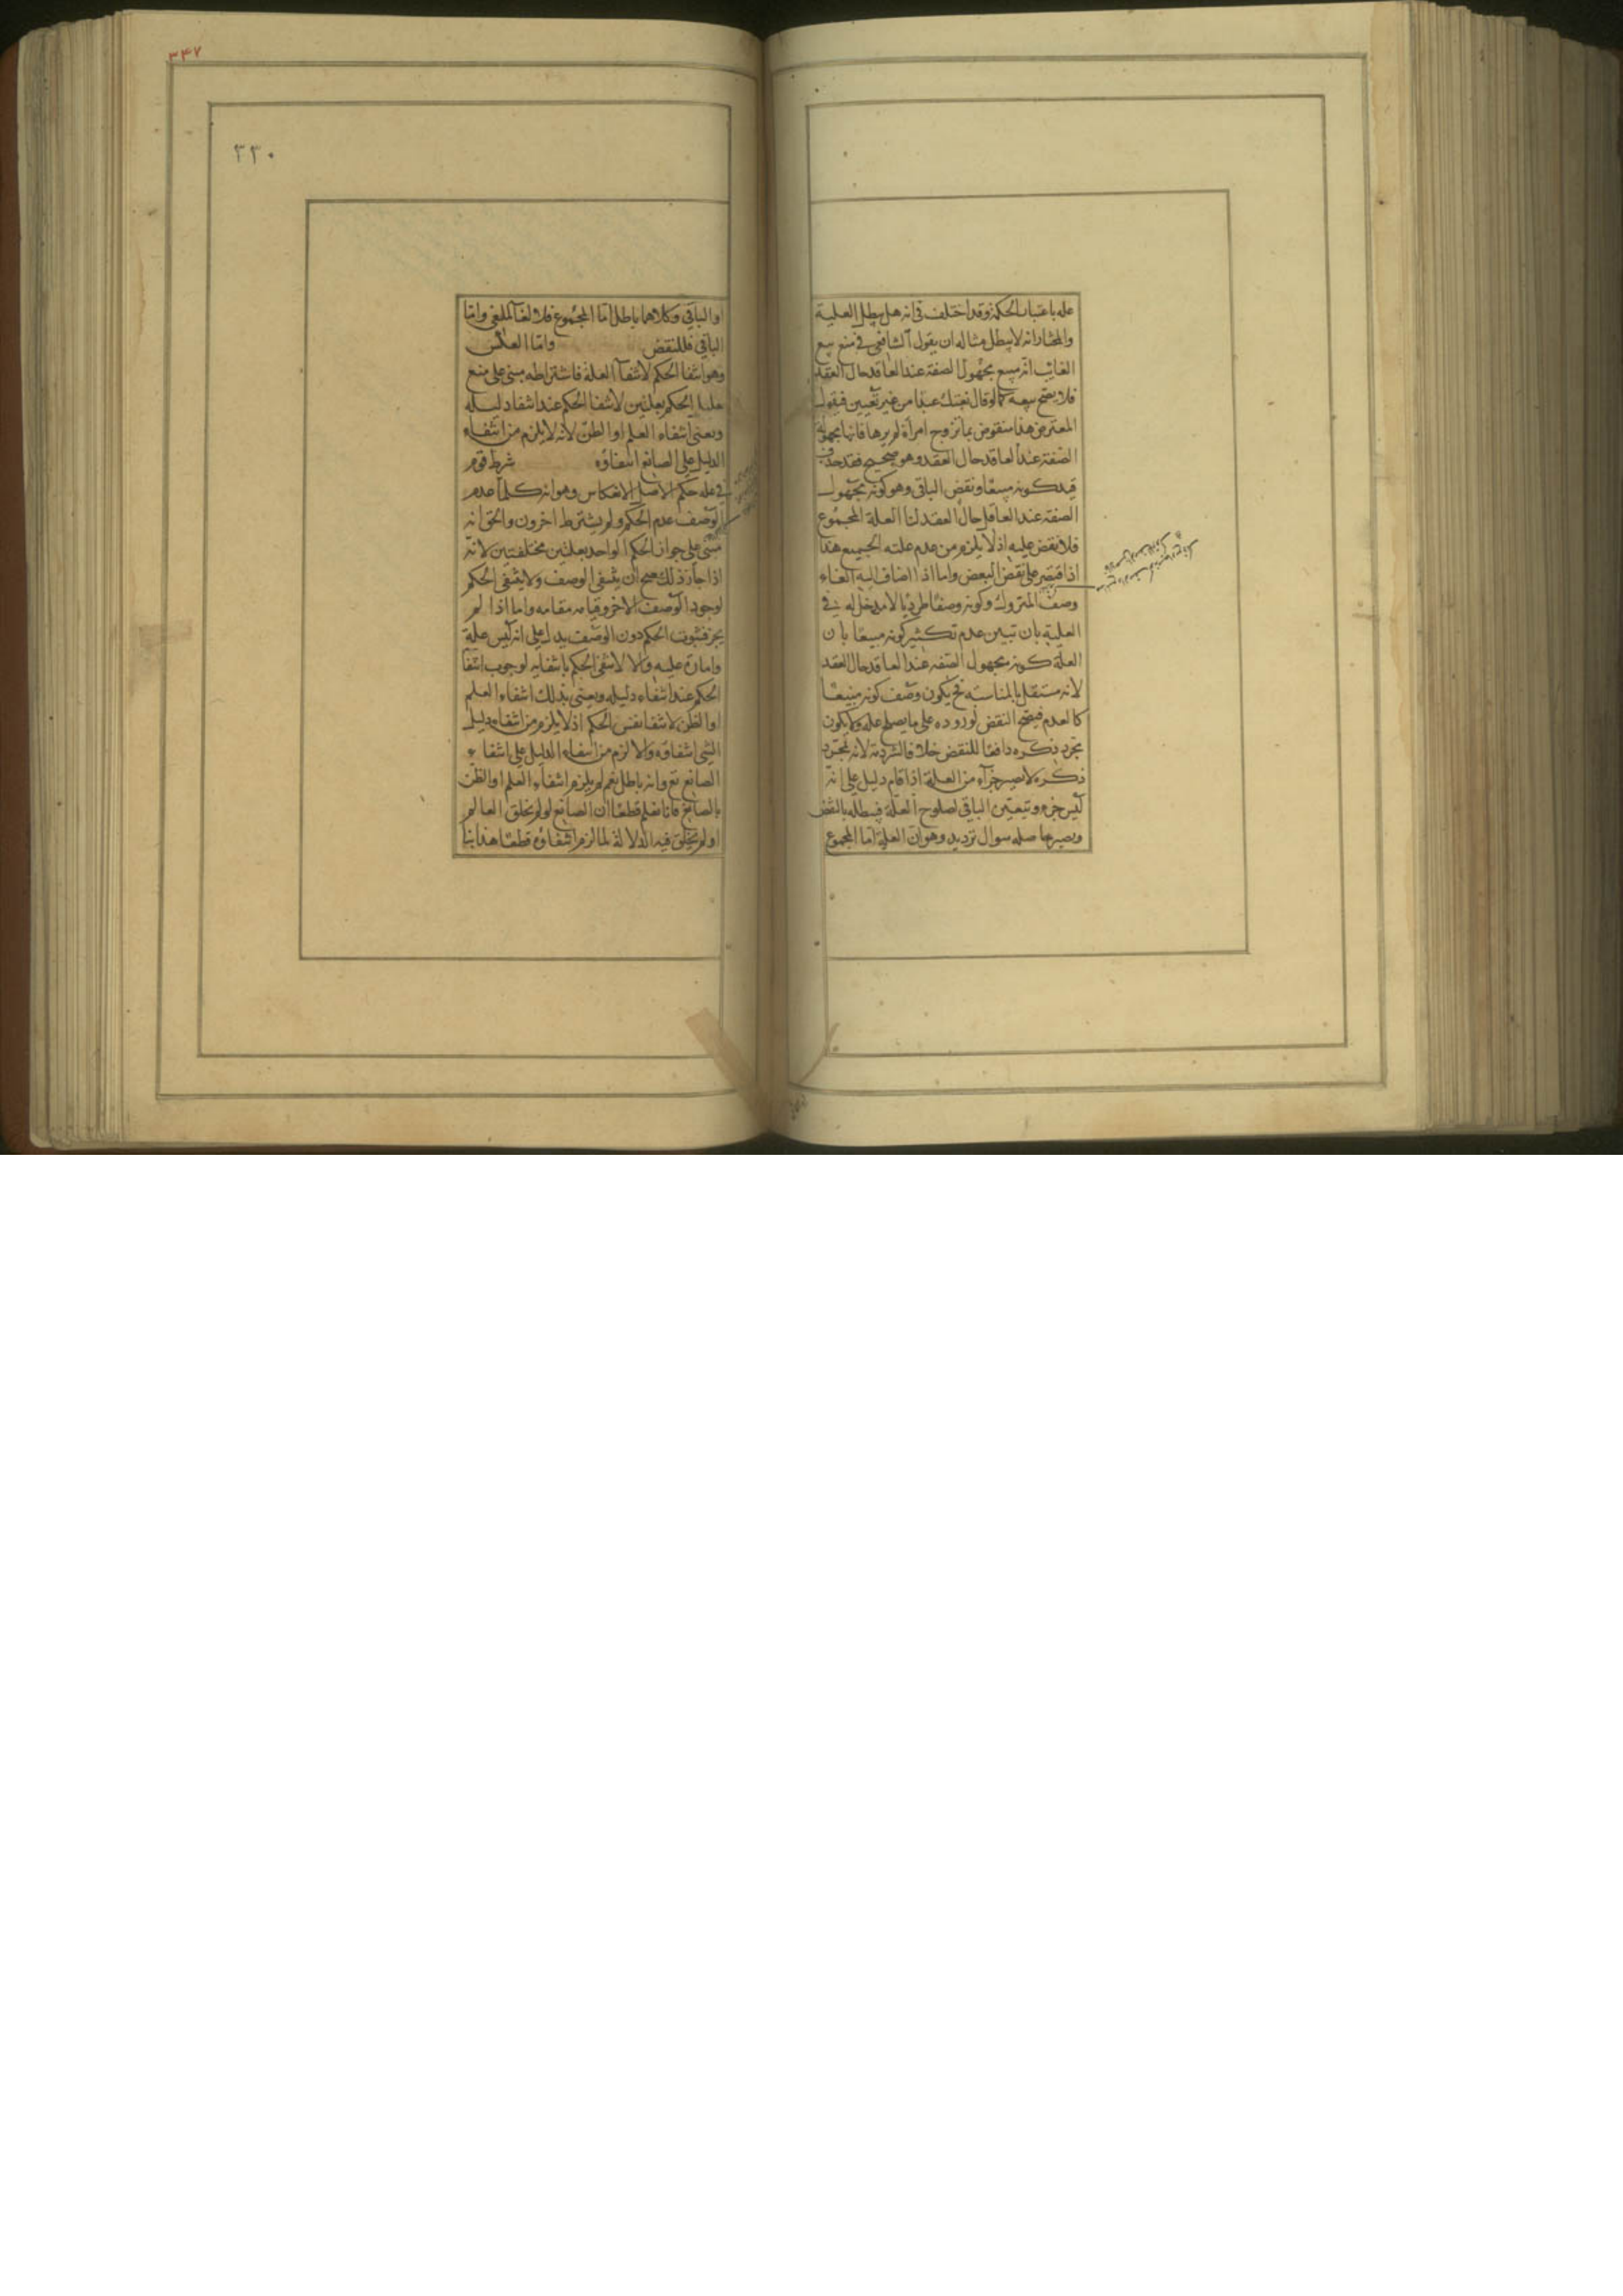 عله باعتبار الحكمة وقد اختلف في انه هل يبطل العلية
والمختار انه لا يبطل مثاله ان يقول الشافعي في منع بيع
الغائب انه مبيع مجهول الصفة عند العاقد حال العقد
فلا يصح بيعه كما لو قال بعتك عبدا من غير تعيين فيقول
المعترض هذا منقوض بما تزوج امرأة لم يرها فانها مجهولة
الصفة عند العاقد حال العقد وهو صحيح فقد حذف
قيد كونه مبيعا ونقض الباقي وهو كونه مجهول
الصفة عند العاقد حال العقد لنا العلة المجموع
فلا نقض عليه اذ لا يلزم من عدم علته الجميع هذا
اذا اقتصر على نقض البعض واما اذا اضاف اليه الغاء
وصف المتروك وكونه وصفا طرديا لا مدخل له في
العلية بان تبين عدم تكثير كونه مبيعا بان
العلة كونه مجهول الصفة عند العاقد حال العقد
لانه مستقل بالمناسبة فح يكون وصف كونه مبيعا
كالعدم فيصح النقض لوروده على ما يصلح علة ولا يكون
مجرد ذكره دافعا للنقض خلافا لشرذمة لانه بمجرد
ذكره لا يصير جزأ من العلة اذا قام دليل على انه
ليس جزء وتبعين الباقي لصلوح العلة فيبطله بالنقض
ويصير حاصله سوال ترديد وهو ان العلة اما المجموع
٣٤٧
٣٣٠
او الباقي وكلاهما باطل اما المجموع فلالغاء الملغى واما
الباقي فللنقض واما العكس
وهو انتفا الحكم لانتفآ العلة فاشتراطه مبني على منع
الحكم بعلتين لانتفا الحكم عند انتفا دليله
ونعني انتفاء العلم او الظن لانه لا يلزم من انتفاء
الدليل على الصانع انتفاؤه شرط قوم
في علة حكم الاصل الانعكاس وهو انه كلما عدم
الوصف عدم الحكم ولم يشترط اخرون والحق انه
مبني على جواز الحكم الواحد بعلتين مختلفتين لانه
اذا جاز ذلك صح ان ينتفي الوصف ولا ينتفي الحكم
لوجود الوصف الاخر وقيامه مقامه واما اذا لم
يجز فثبوت الحكم دون الوصف يدل على انه ليس علة
وامارة عليه والا لانتفى الحكم بانتفايه لوجوب انتفآ
الحكم عند انتفاء دليله ونعني بذلك انتفاء العلم
او الظن لا انتفا نفس الحكم اذ لا يلزم من انتفاء دليل
الشي انتفاؤه والا لزم من انتفاء الدليل على انتفاء
الصانع تع وانه باطل نعم لم يلزم انتفاء العلم او الظن
بالصانع فانا نعلم قطعا ان الصانع لو لم يخلق العالم
او لم يخلق فيه الدلالة لما لزم انتفاؤه قطعا هذا بنا